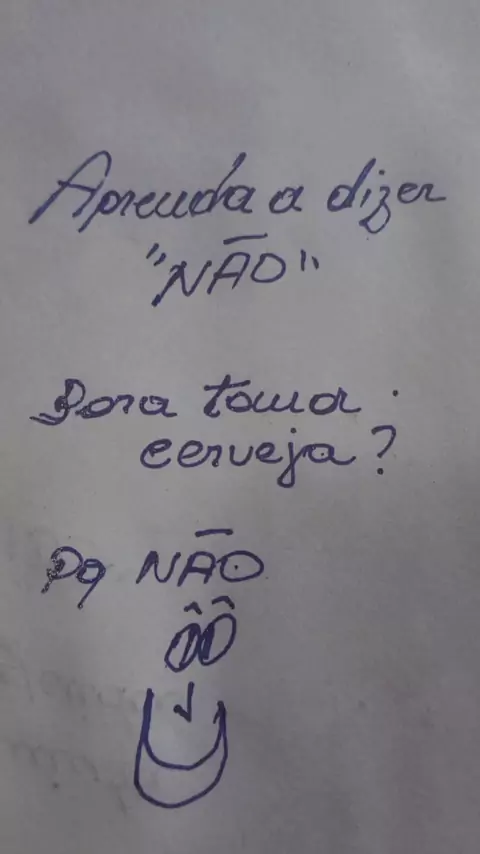 Aprenda a dizer
"NÃO"
Bora tomar
cerveja?
Pq NÃO